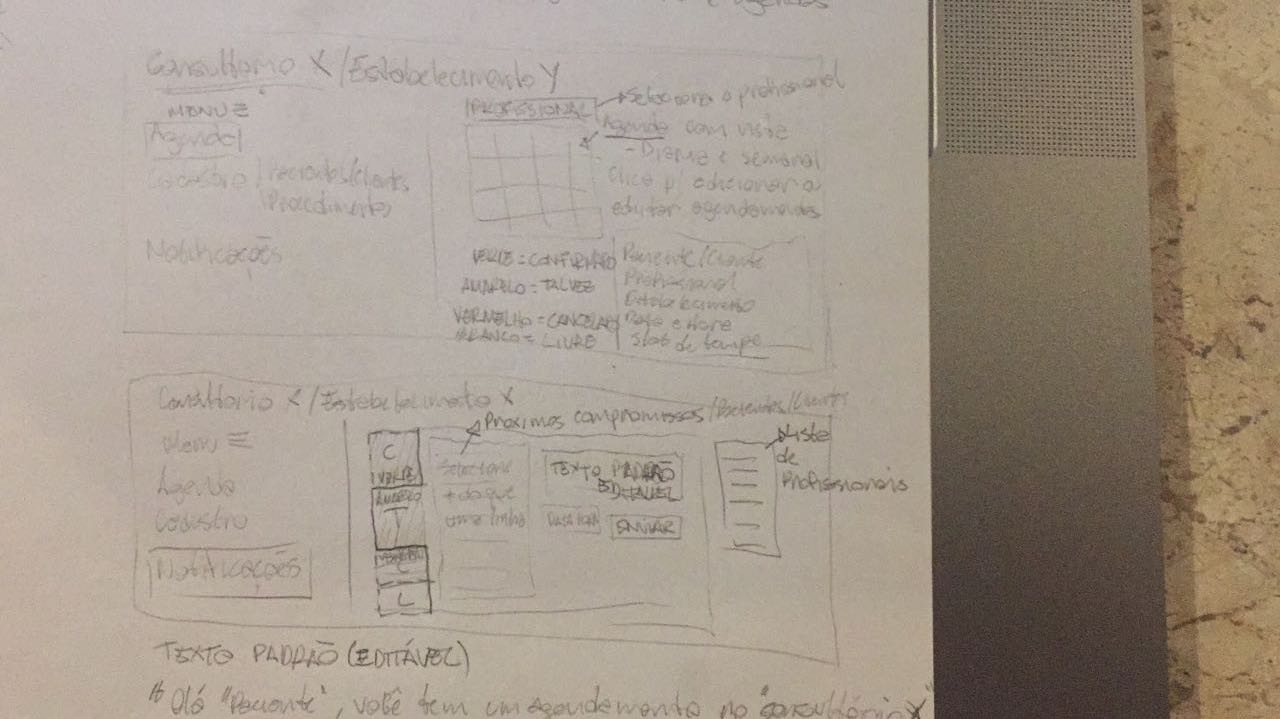 e agendas
Consultorio X/Estabelecimento Y
MENU
Agenda
Cadastro / Pacientes/Clientes
/ Procedimentos
Notificações
PROFISSIONAL
Seleciona o profissional
Agenda com vista
- Diaria e semanal
Clica p/ adicionar e
editar agendamentos
VERDE = CONFIRMADO
AMARELO = TALVEZ
VERMELHO = CANCELADO
BRANCO = LIVRE
Paciente/Cliente
Profissional
Estabelecimento
Data e Hora
Slot de tempo
Consultorio X/Estabelecimento X
Menu
Agenda
Cadastro
Notificações
Proximos compromissos/Pacientes/Clients
C
VERDE
AMARELO
T
C
L
Selecione
+ do que
uma linha
TEXTO PADRÃO
EDITAVEL
ENVIAR
Liste
de
Profissionais
TEXTO PADRÃO (EDITÁVEL)
"Olá "Paciente", você tem um agendamento no "consultório X"